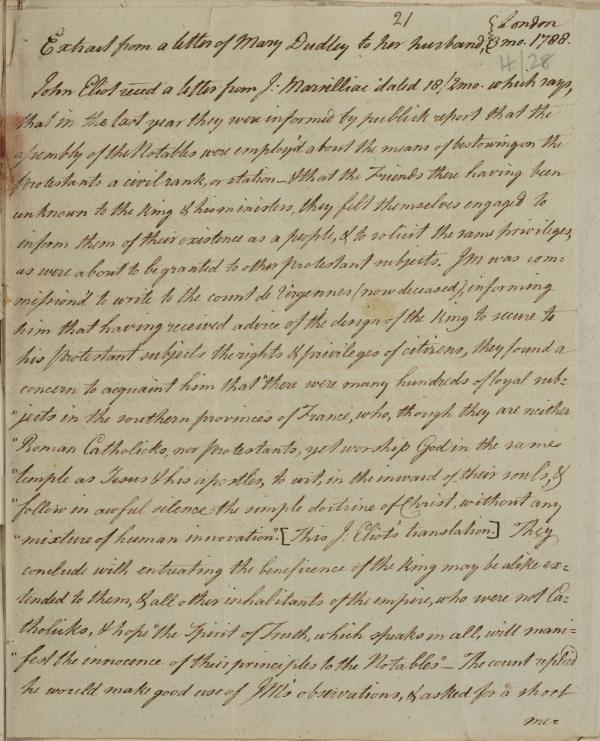 21
Extract from a letter of Mary Dudley to her husband, { London
3mo. 1788.
4/28
John Eliot reced a letter from J: Marsilliac dated 18/2mo. which says,
that in the last year they were informed by publick report that the
assembly of the Notables were employ'd about the means of bestowing on the
Protestants a civil rank, or station – & that the Friends there having been
unknown to the King & his ministers, they felt themselves engaged to
inform them of their existence as a people, & to solicit the same privileges,
as were about to be granted to other protestant subjects. JM was com-
mission'd to write to the count de Vergennes (now deceased), informing
him that having received advice of the design of the King to secure to
his protestant subjects the rights & privileges of citizens, they found a
concern to acquaint him that "there were many hundreds of loyal sub-
"jects in the southern provinces of France, who, though they are neither
"Roman Catholicks, nor protestants, yet worship God in the same
"temple as Jesus & his apostles, to wit, in the inward of their souls, &
"follow in awful silence the simple doctrine of Christ, without any
"mixture of human innovation". [This J. Eliot's translation.] They
conclude with entreating the beneficence of the King may be alike ex-
tended to them, & all other inhabitants of the empire, who were not Ca-
tholicks, & hope "the Spirit of Truth, which speaks in all, will mani-
"fest the innocence of their principles to the Notables" – The count replied
he would make good use of JM's observations, & asked for a short
me-